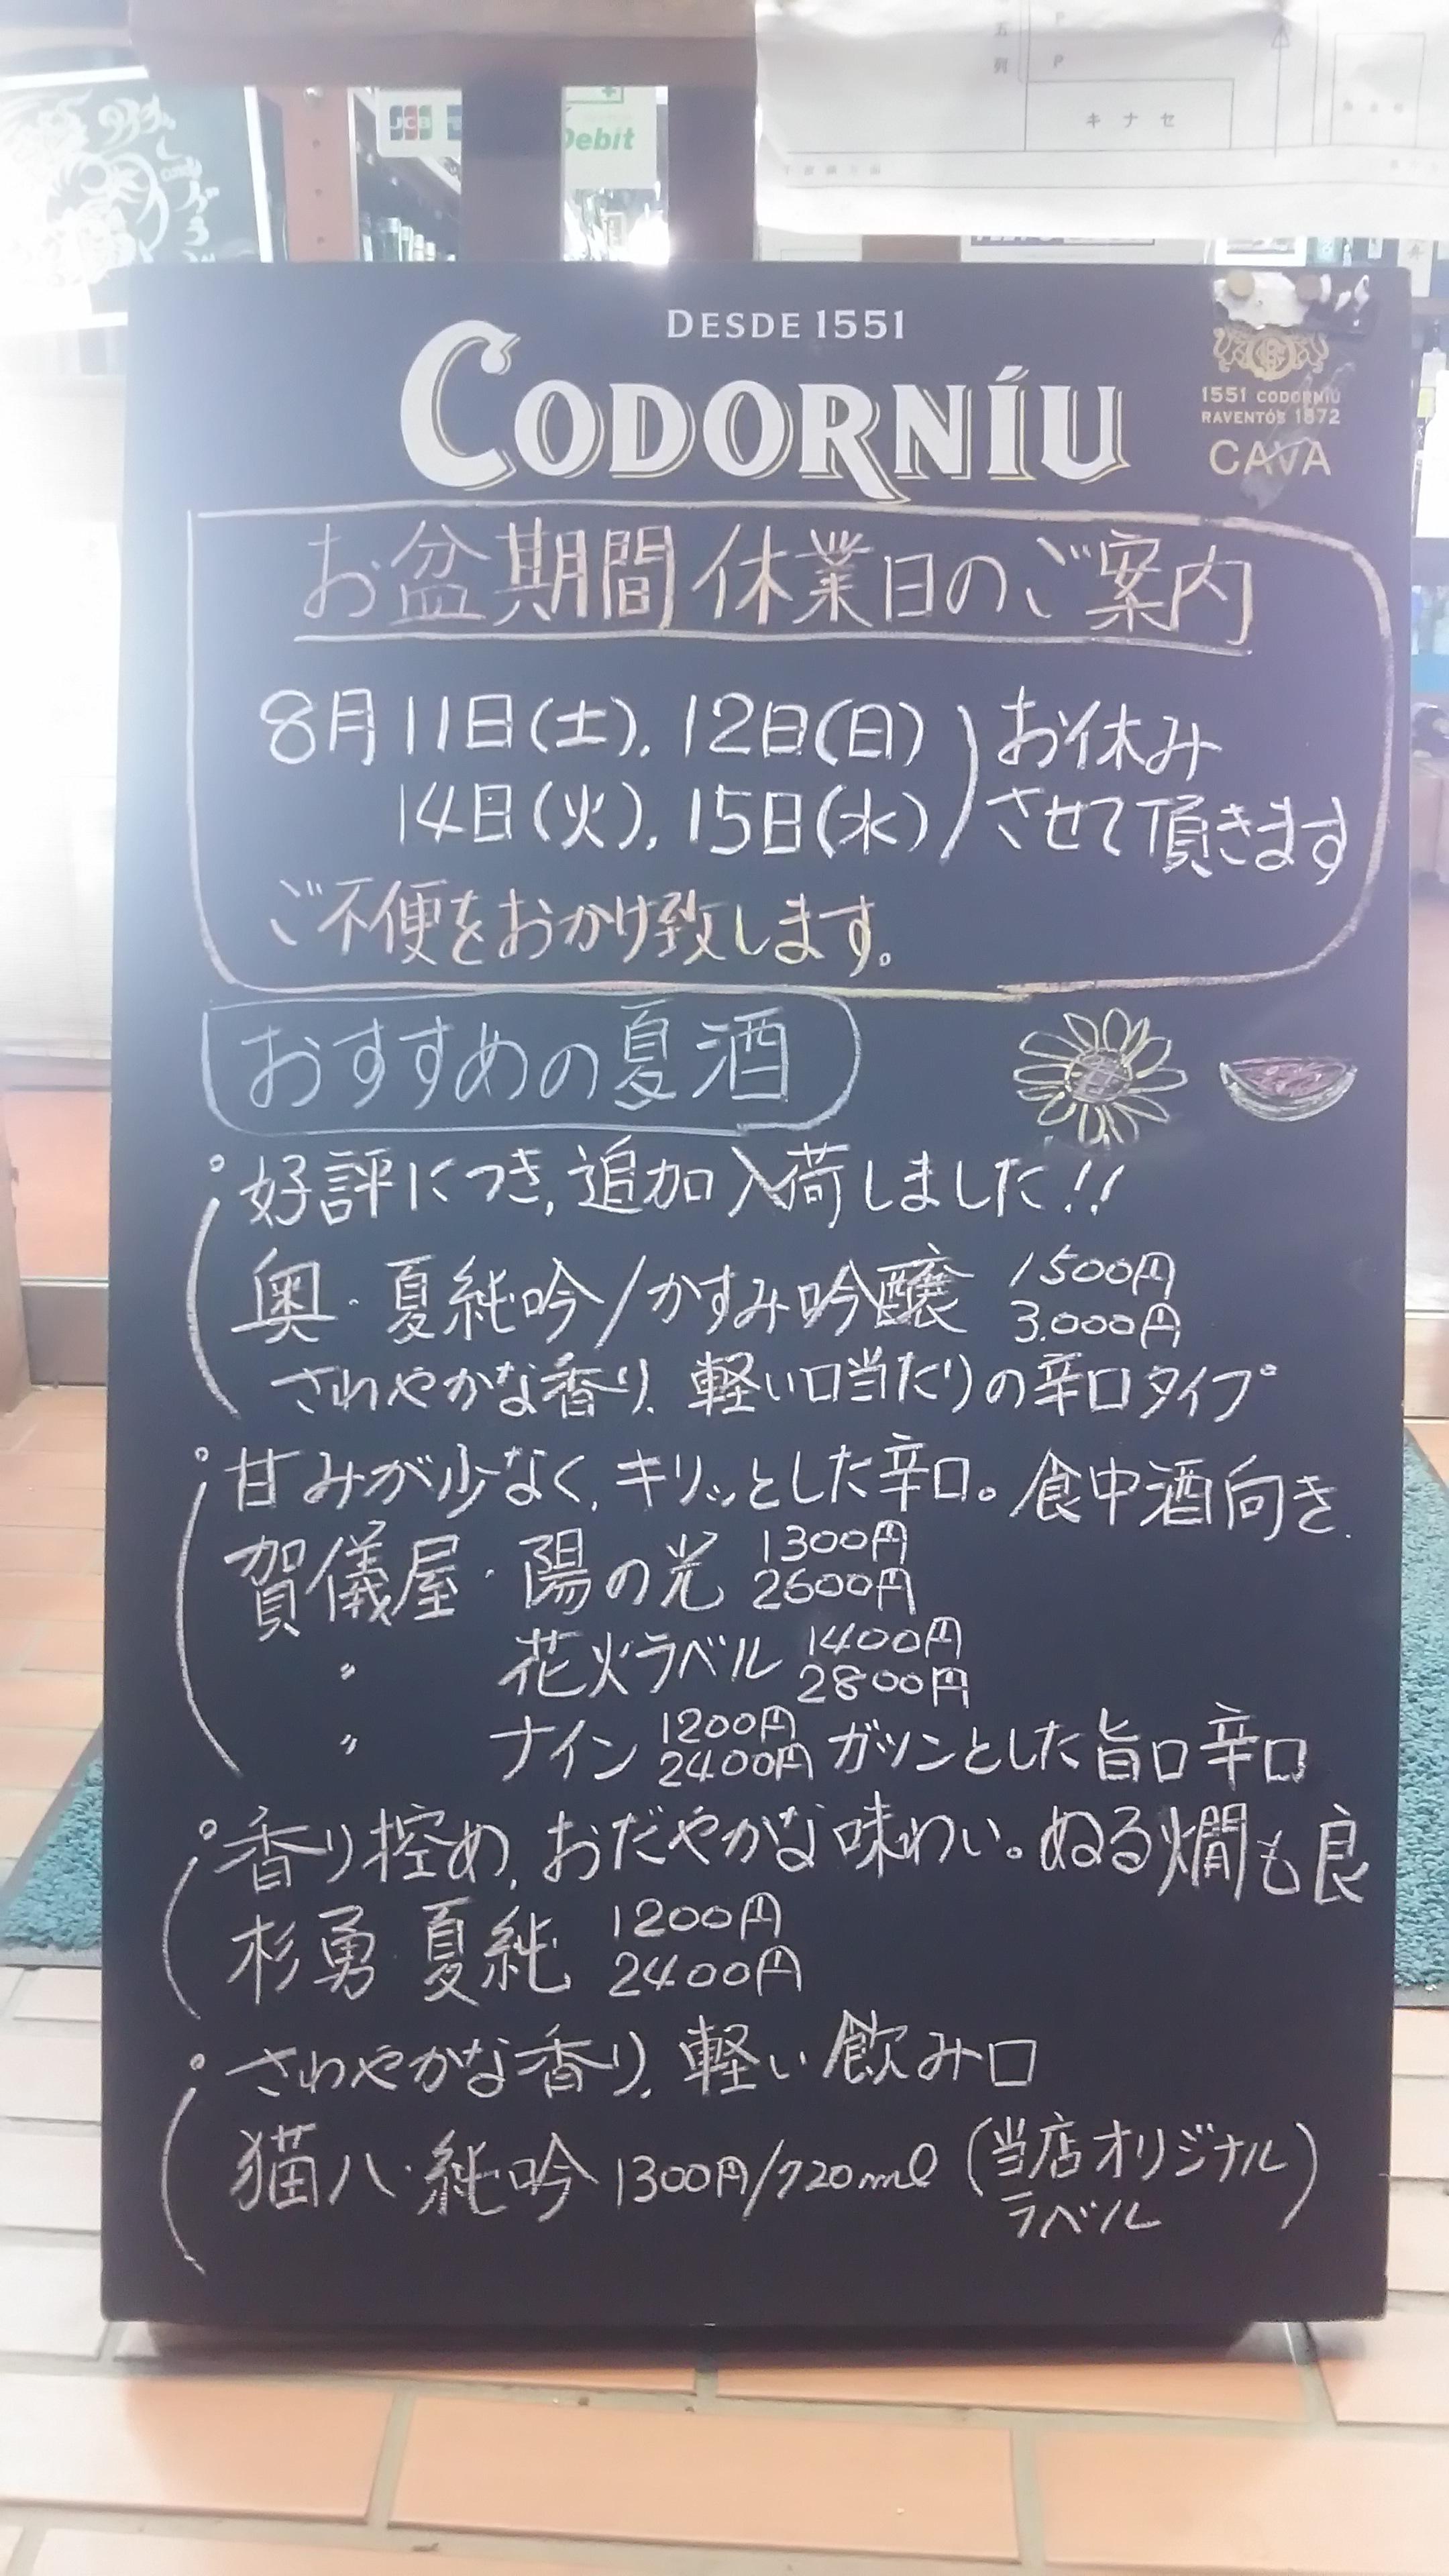 JCB
Debit
キナセ
DESDE 1551
CODORNÍU
1551 CODORNÍU
RAVENTÓS 1872
CAVA
お盆期間休業日のご案内
8月11日(土), 12日(日)
14日(火), 15日(水)
お休み
させて頂きます
ご不便をおかけ致します。
おすすめの夏酒
好評につき, 追加入荷しました!!
奥・夏純吟/かすみ吟醸 1500円
3.000円
さわやかな香り, 軽い口当たりの辛口タイプ
甘みが少なく, キリッとした辛口。食中酒向き.
賀儀屋・陽の光 1300円
2600円
〃 花火ラベル 1400円
2800円
〃 ナイン 1200円
2400円 ガツンとした旨口辛口
香り控め, おだやかな味わい。ぬる燗も良
杉勇・夏純 1200円
2400円
さわやかな香り, 軽い飲み口
猫八・純吟 1300円/720ml (当店オリジナル
ラベル)